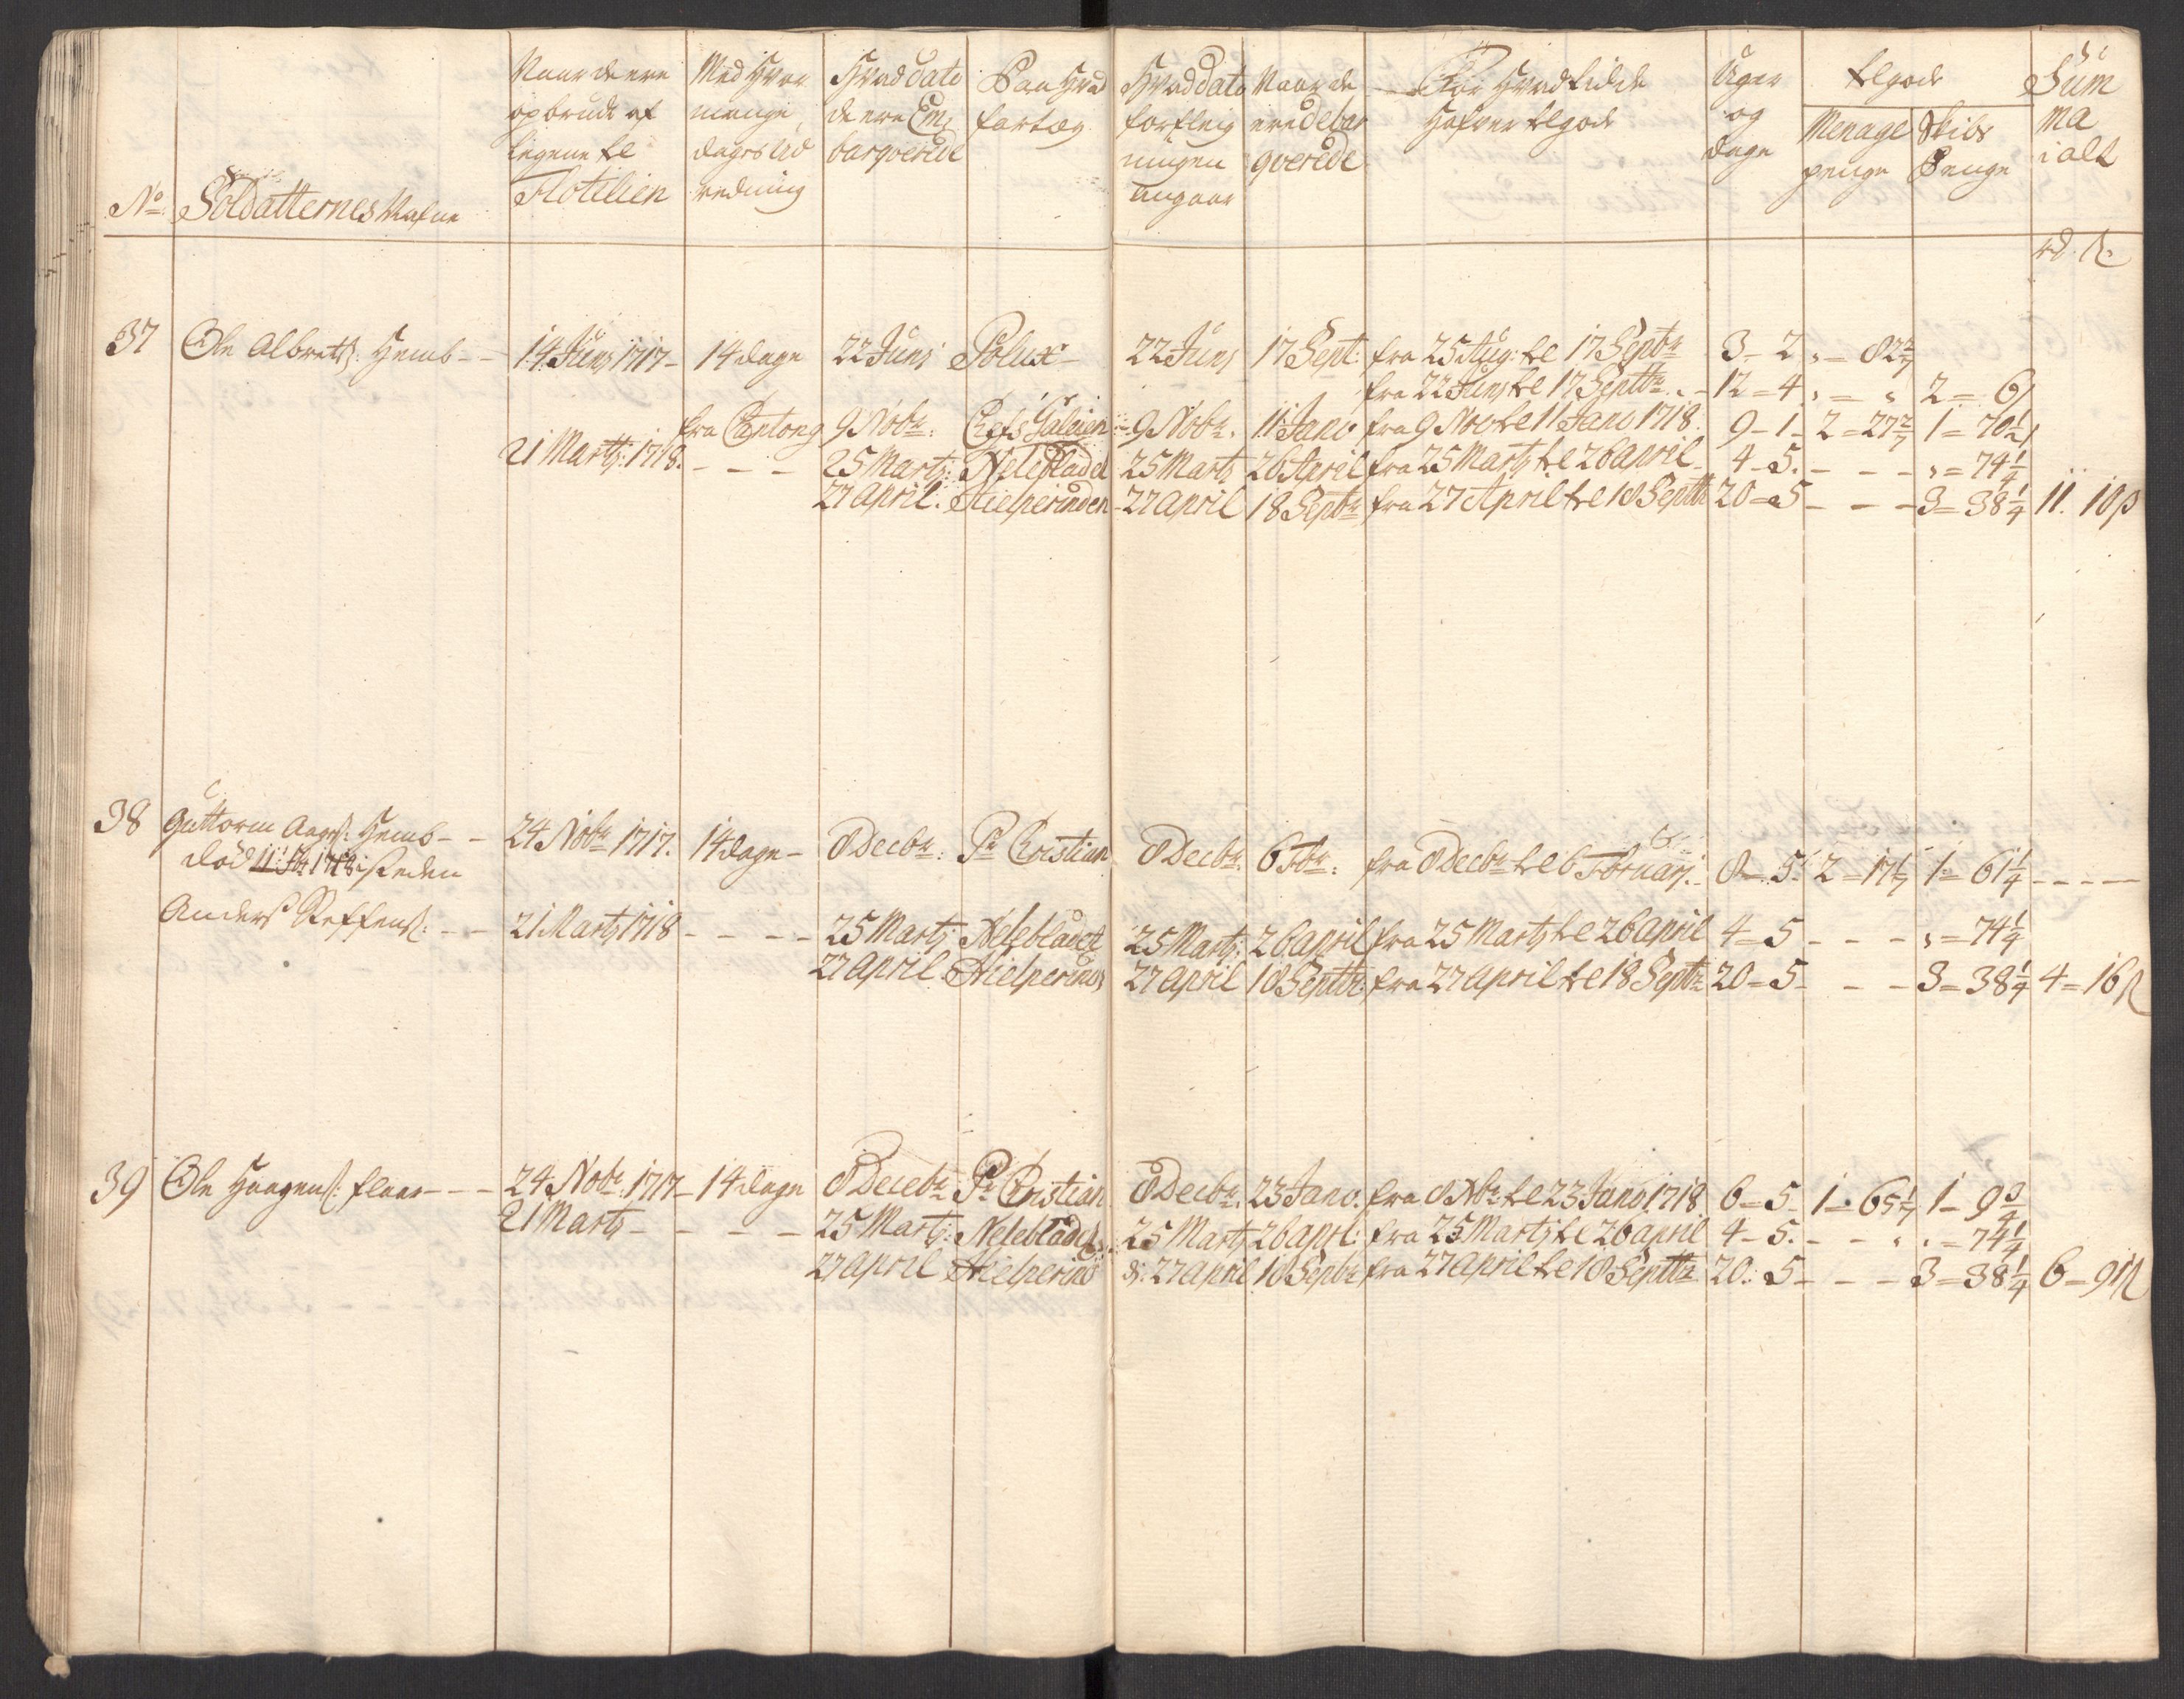 No: Soldatternes Nafne
Naar de ere opbrudt af Legene til Flotilien
Med Hvor mange dages Ud redning
Hvad dato de ere Embarqverede
Paa Hvad fartøy
Hvad dato forfleigningen angaar
Naar de ere debarqverede
For Hvad tid de Hafver tilgode
Uger og dage
tilgode
Menage penge
Skibs Penge
Summa i alt
rd. ß.
37 Ole Albretß: Hemb - - 14 Junj 1717 - 14 dage 22 Junj Polux - 22 Junj 17 Sept: fra 25 Aug: til 17 Septbr 3 - 2 „ - 82 2/7
fra 22 Junj til 17 Septbr - 12 = 4 „ = „ 2 = 6
fra Cantong 9 Nobr: Chefs Galeien 9 Nobr. 11 Janv fra 9 Nov til 11 Janv 1718. 9 - 1 - 2 = 27 2/7 1 = 70 1/4
21 Martj: 1718. - - - 25 Martj: Nelebladet 25 Martj 26 April fra 25 Martj til 26 april - 4 - 5. - - - „ = 74 1/4
27 april. Hielperinden - 27 april 18 Septbr fra 27 April til 18 Septbr 20 = 5 - - - 3 = 38 1/4 11. 10 ß
38 Guttorm Aageß: Hemb - - 24 Nobr 1717. 14 dage - 8 Decbr: Pr Christian 8 Decbr. 6 Febr: fra 8 Decbr til 6 Februarj. - 8 = 5. 2 = 17 1/7 1 = 61 1/4 - - - -
død 11 1718
Anderß Steffenß: - - 21 Martj 1718 - - - - 25 Martj: Nelebladet 25 Martj: 26 april fra 25 Martj til 26 april 4 = 5 - - - „ = 74 1/4
27 april Hielperind 27 april 18 Septbr: fra 27 april til 18 Septbr 20 = 5 - - - 3 = 38 1/4 4 = 16 ß
39 Ole Haagenß: - - - 24 Nobr: 1717 - 14 dage 8 Decebr Pr Cristian 8 Decbr. 23 Janv. fra 8 Xbr til 23 Janv 1718 6 = 5 - 1 = 65 1/7 1 - 9 3/4
21 Martj - - - - 25 Martj: Neleblade 25 Martj 26 aprl: fra 25 Martj til 26 april 4 - 5. - - „ „ = 74 1/4
27 april Hielperind 27 april 18 Septbr fra 27 april til 18 Septbr 20. 5 - - - 3 = 38 1/4 6 - 91 ß